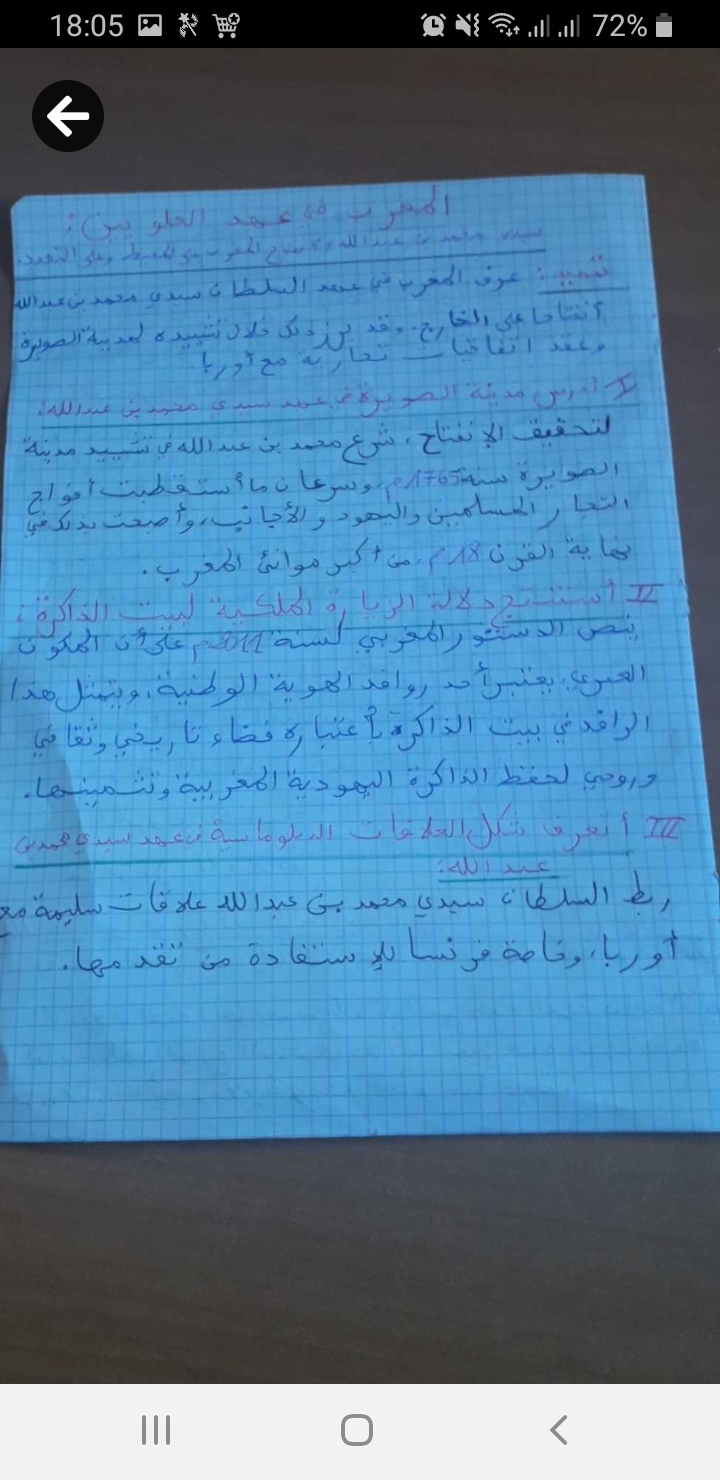 18:05
72%
المغرب في عهد العلويين:
سيدي محمد بن عبد الله وانفتاح المغرب على المحيط وعلى
تمهيد: عرف المغرب في عهد السلطان سيدي محمد بن عبدالله
أنفتاحا على الخارج. وقد برز ذلك خلال تشييده لمدينة الصويرة
وعقد اتفاقيات تجارية مع أوربا.
I أدرس مدينة الصويرة في عهد سيدي محمد بن عبدالله:
لتحقيق الإنفتاح، شرع محمد بن عبد الله في تشييد مدينة
الصويرة سنة 1765م، وسرعان ما أستقطبت أفواج
التجار المسلمين واليهود والأجانب، وأصبحت بذلك في
نهاية القرن 18م، من أكبر موانئ المغرب.
II أستنتج دلالة الزيارة الملكية لبيت الذاكرة:
ينص الدستور المغربي لسنة 2011م على أن المكون
العبري، يعتبر أحد روافد الهوية الوطنية، ويتمثل هذا
الرافد في بيت الذاكرة بأعتباره فضاء تاريخي وثقافي
وروحي لحفظ الذاكرة اليهودية المغربية وتثمينها.
III أتعرف شكل العلاقات الدبلوماسية في عهد سيدي محمد بن
عبد الله:
ربط السلطان سيدي محمد بن عبد الله علاقات سليمة مع
أوربا، وخاصة فرنسا للإستفادة من تقدمها.